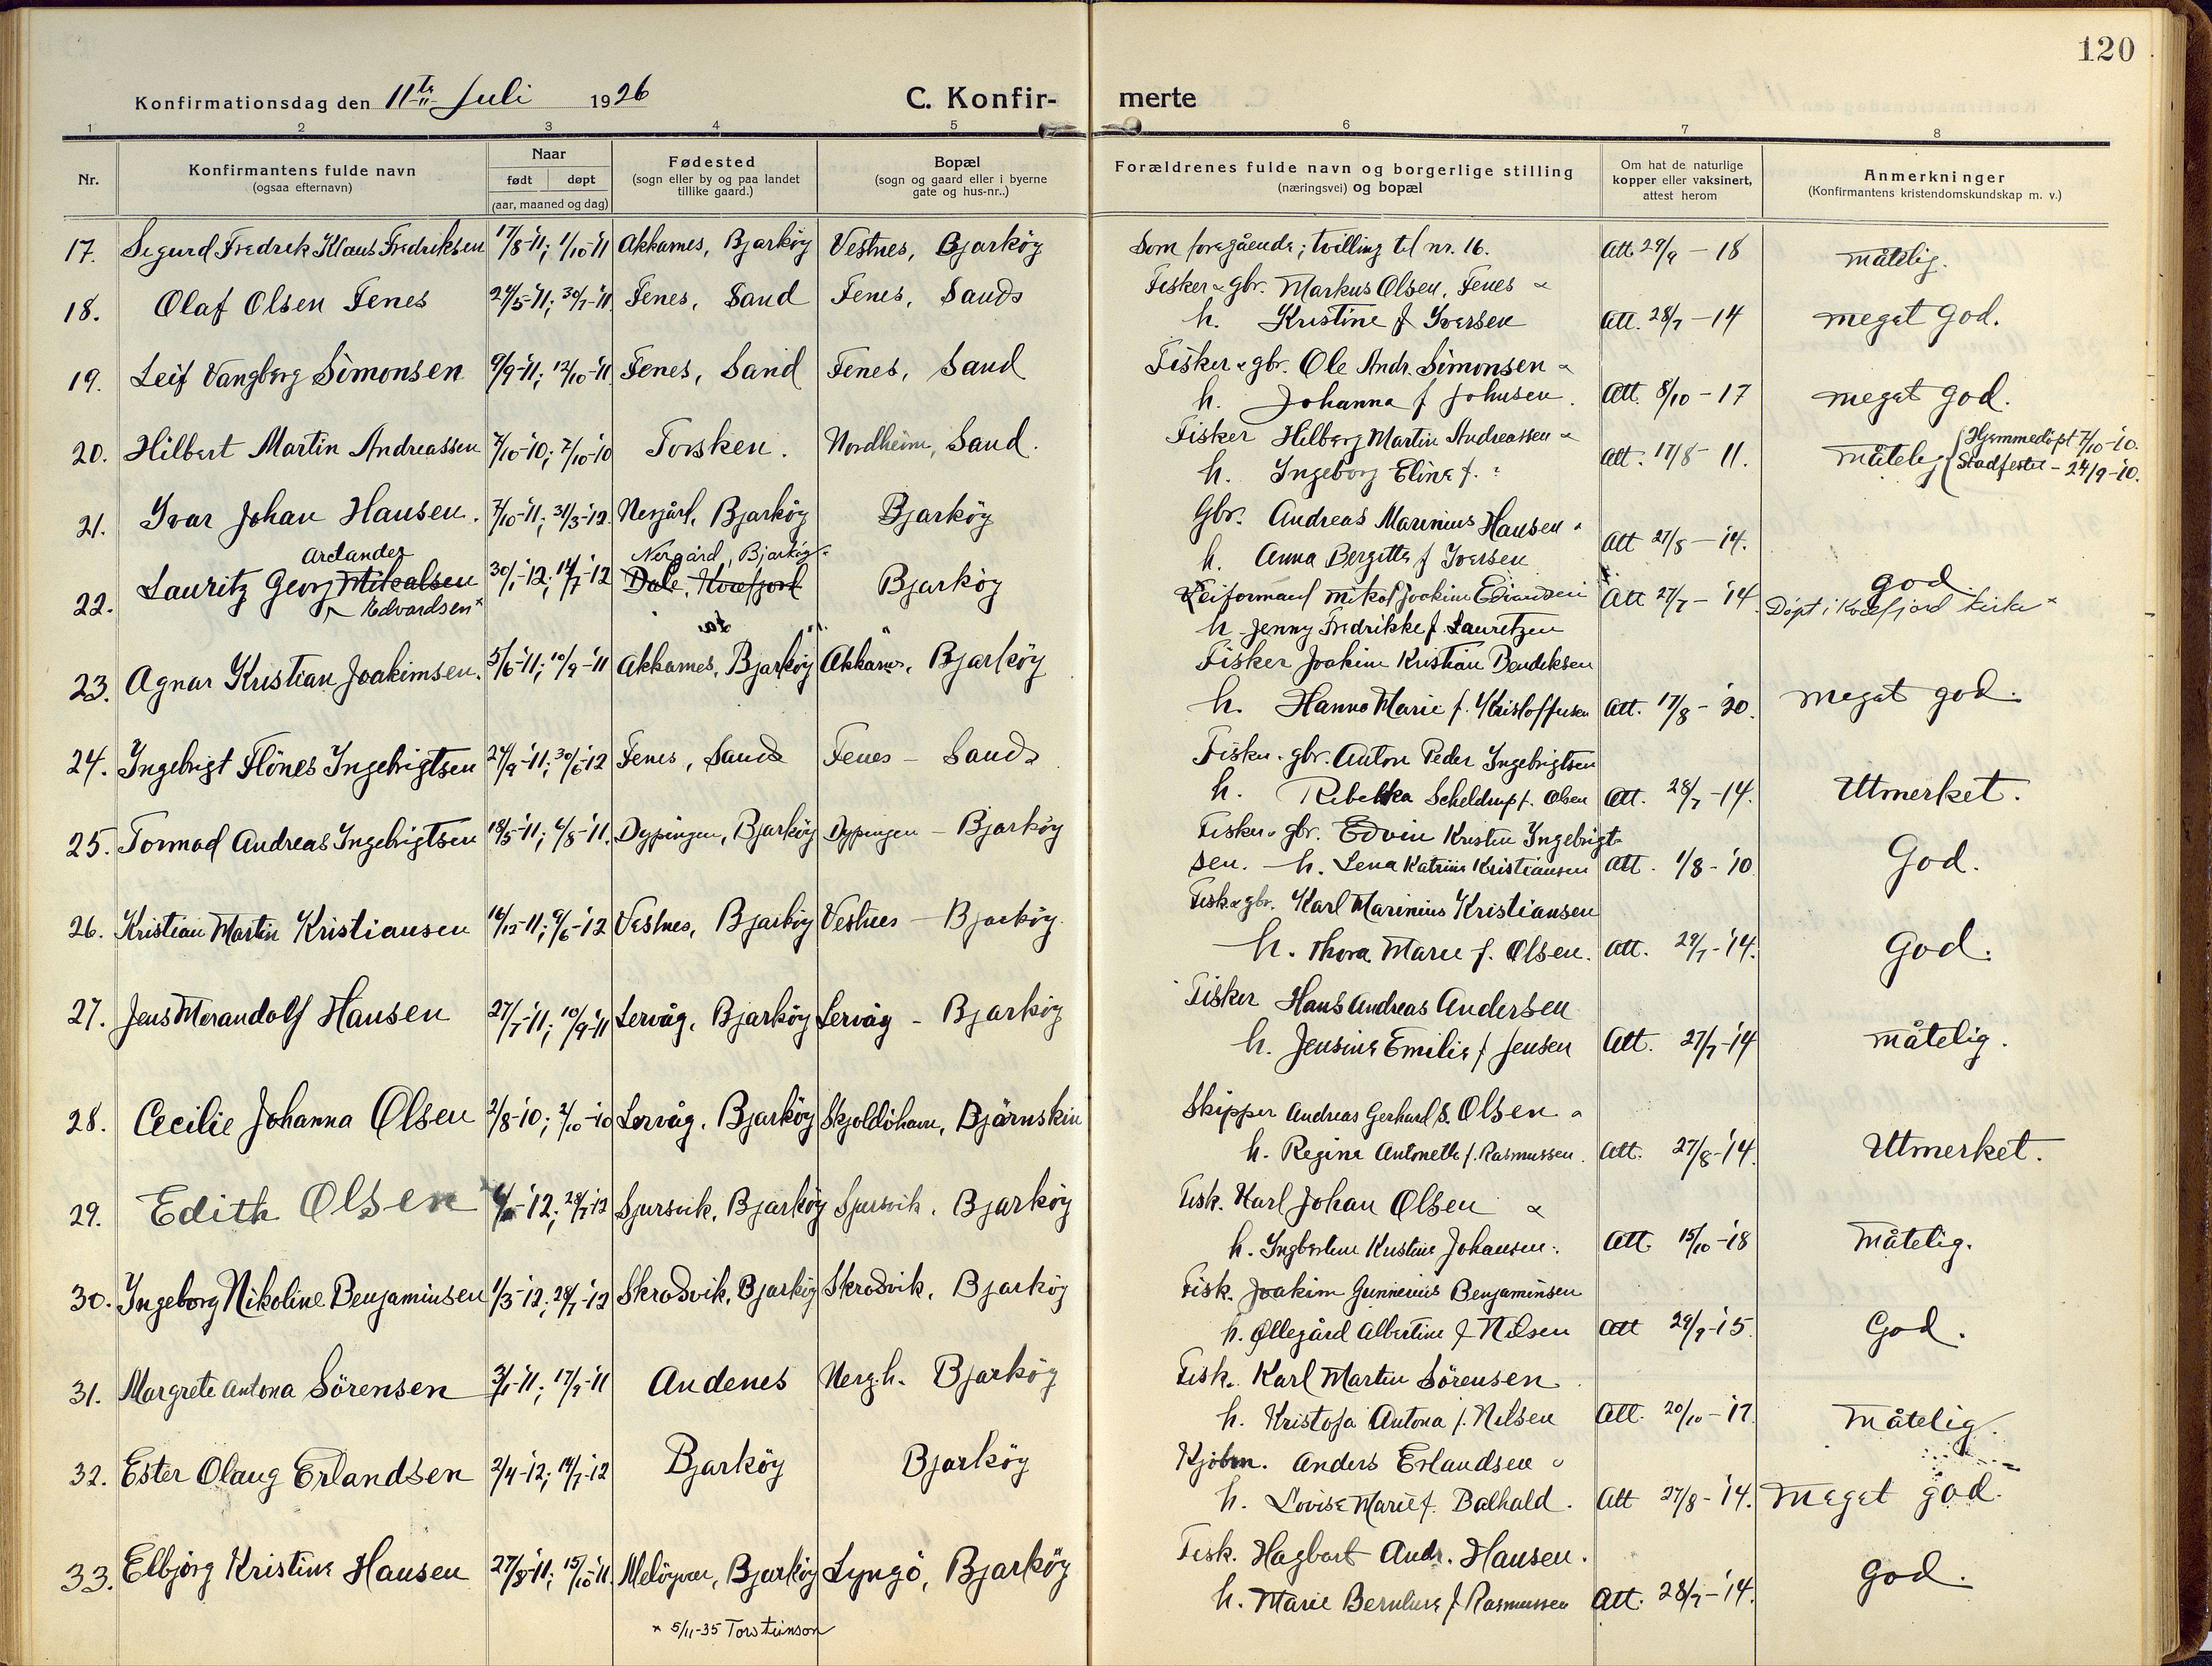 120
Konfirmationsdag den 11te Juli 1926 C. Konfir- merte
1 2 3 4 5 6 7 8
Nr.
Konfirmantens fulde navn
(ogsaa efternavn)
Naar
født døpt
(aar, maaned og dag)
Fødested
(sogn eller by og paa landet
tillike gaard.)
Bopæl
(sogn og gaard eller i byerne
gate og hus-nr..)
Forældrenes fulde navn og borgerlige stilling
(næringsvei) og bopæl
Om hat de naturlige
kopper eller vaksinert,
attest herom
Anmerkninger
(Konfirmantens kristendomskundskap m. v.)
17. Sigurd Fredrik Klaus Fredriksen 17/8-'11; 1/10-'11 Akkarnes, Bjarköy Vestnes, Bjarköy Som foregående; tvilling til nr. 16. Att. 29/9 - 18 måtelig.
18. Olaf Olsen Fenes 24/5-'11; 30/7-'11. Fenes, Sand Fenes, Sand Fisker & gbr. Markus Olsen, Fenes &
h. Kristine f Iversen Att. 28/7 - 14 meget god.
19. Leif Vangberg Simonsen 9/9-'11; 12/10-'11 Fenes, Sand Fenes, Sand Fisker & gbr. Ole Andr. Simonsen &
h. Johanna f Johnsen. Att. 8/10 - 17 meget god.
20. Hilbert Martin Andreassen 7/10-'10; 7/10-'10 Torsken. Nordheim, Sand. Fisker Hilberg Martin Andreassen &
h. Ingeborg Eline f. : Att. 17/8 - 11. måtelig { Hjemmedöpt 7/10-'10.
Stadfestet - 24/9-'10.
21. Ivar Johan Hansen. 7/10-'11; 31/3-'12. Nergård, Bjarköy Bjarköy Gbr. Andreas Marinius Hansen &
h. Anna Bergitte f Iversen Att 27/8 - '14. god.
Arctander Nergård, Bjarköy.
22. Lauritz Georg Mikalsen 30/1-'12; 14/7-'12 Dale, Kvæfjord Bjarköy Leiformand Mikal Joakim Edvardsen Att 27/7 - '14 Döpt i Kvæfjord kirke ×
Edvardsen × h. Jenny Fredrikke f. Lauritzen
23. Agnar Kristian Joakimsen. 5/6-'11; 10/9-'11 Akkarnes, Bjarköy Akkarnes, Bjarköy Fisker Joakim Kristian Bendiksen
h. Hanna Marie f. Kristoffersen Att. 17/8 - '20. meget god.
24. Ingebrigt Flönes Ingebrigtsen 24/9-'11; 30/6-'12 Fenes, Sand Fenes - Sand Fisker & gbr. Anton Peder Ingebrigtsen
h. Rebekka Scheldrup f. Olsen Att. 28/7 - 14. Utmerket.
25. Tormod Andreas Ingebrigtsen 18/5-'11; 6/8-'11. Dypingen, Bjarköy Dypingen - Bjarköy Fisker & gbr. Edvin Kristin Ingebrigt-
sen. - h. Lena Katrine Kristiansen Att. 1/8 - '10. God.
26. Kristian Martin Kristiansen 16/12-'11; 9/6-'12 Vestnes, Bjarköy Vestnes - Bjarköy. Fisk. & gbr. Karl Marinius Kristiansen
h. Thora Marie f. Olsen. Att. 29/7 - '14. God.
27. Jens Morandolf Hansen 27/7-'11; 10/9-'11 Lervåg, Bjarköy Lervåg - Bjarköy Fisker Hans Andreas Andersen
h. Jensine Emilie f Jensen Att. 27/7-'14 måtelig.
28. Cecilie Johanna Olsen 2/8-'10; 2/10-'10 Lervåg, Bjarköy Skjoldöhavn, Björnskin Skipper Andreas Gerhard S. Olsen &
h. Regine Antonette f. Rasmussen. Att. 27/8-'14. Utmerket.
29. Edith Olsen '12; 28/7-'12 Sjursvik, Bjarköy Sjursvik, Bjarköy Fisk. Karl Johan Olsen &
h. Ingbertine Kristine Johansen. Att. 15/10-'18 Måtelig.
30. Ingeborg Nikoline Benjaminsen 1/3-'12; 28/7-'12 Skrodvik, Bjarköy Skrodvik, Bjarköy Fisk. Joakim Gunnerius Benjaminsen
h. Øllegård Albertine f Nilsen Att 29/9-'15. God.
31. Margrete Antona Sörensen 3/1-'11; 17/9-'11 Andenes Nerg.h. Bjarköy Fisk. Karl Martin Sörensen
h. Kristofa Antona f. Nilsen Att. 20/10-'17. Måtelig.
32. Ester Olaug Erlandsen 2/4-'12; 14/7-'12 Bjarköy Bjarköy Kjöbm. Anders Erlandsen &
h. Lovise Marie f. Balhald. Att 27/8-'14. Meget god.
33. Elbjörg Kristine Hansen 27/8-'11; 15/10-'11. Melöyvær, Bjarköy Lyngö, Bjarköy Fisk. Hagbart Andr. Hansen.
h. Marie Bernline f Rasmussen Att. 28/7-'14. God.
× 5/11-35 Torsteinson